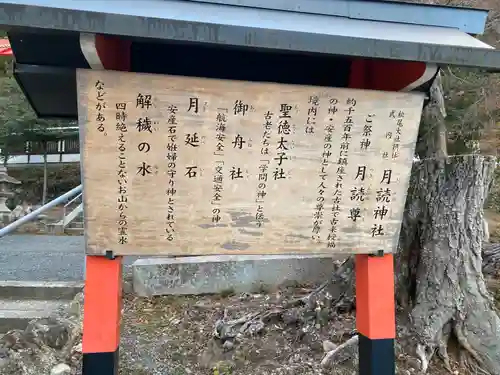 松尾大社摂社
式内社
月読神社
ご祭神 月読尊
約千五百年前に鎮座された古社で古来学問
の神・安産の神として人々の尊崇が厚い。
境内には
聖徳太子社
古老たちは「学問の神」と伝う
御舟社
「航海安全」「交通安全」の神
月延石
安産石で姙婦の守り神とされている
解穢の水
四時絶えることないお山からの霊水
などがある。